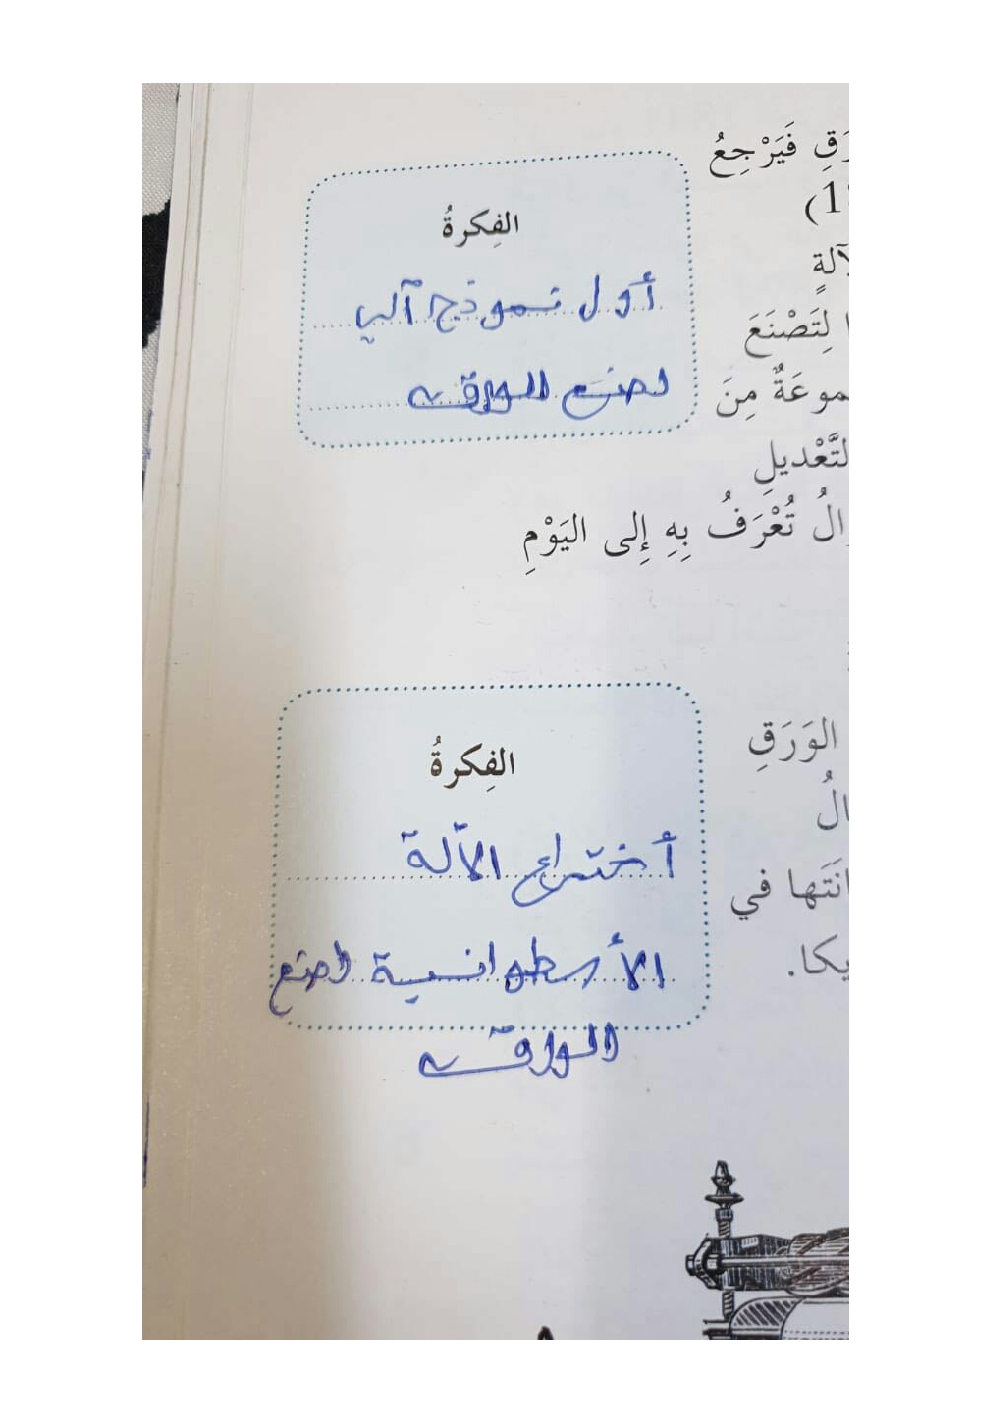 رَقِ فَيَرْجِعُ
الفِكرةُ
(1
آلةٍ
أول نموذج آلي
ا لِتَصْنَعَ
لصنع الورق
موعَةٌ مِنَ
لتَّعْديلِ
الُ تُعْرَفُ بِهِ إِلى اليَوْمِ
الوَرَقِ
الفِكرةُ
الُ
أختراع الآلة
انَتَها في
الأسطوانية لصنع
يكا.
الورق
٨